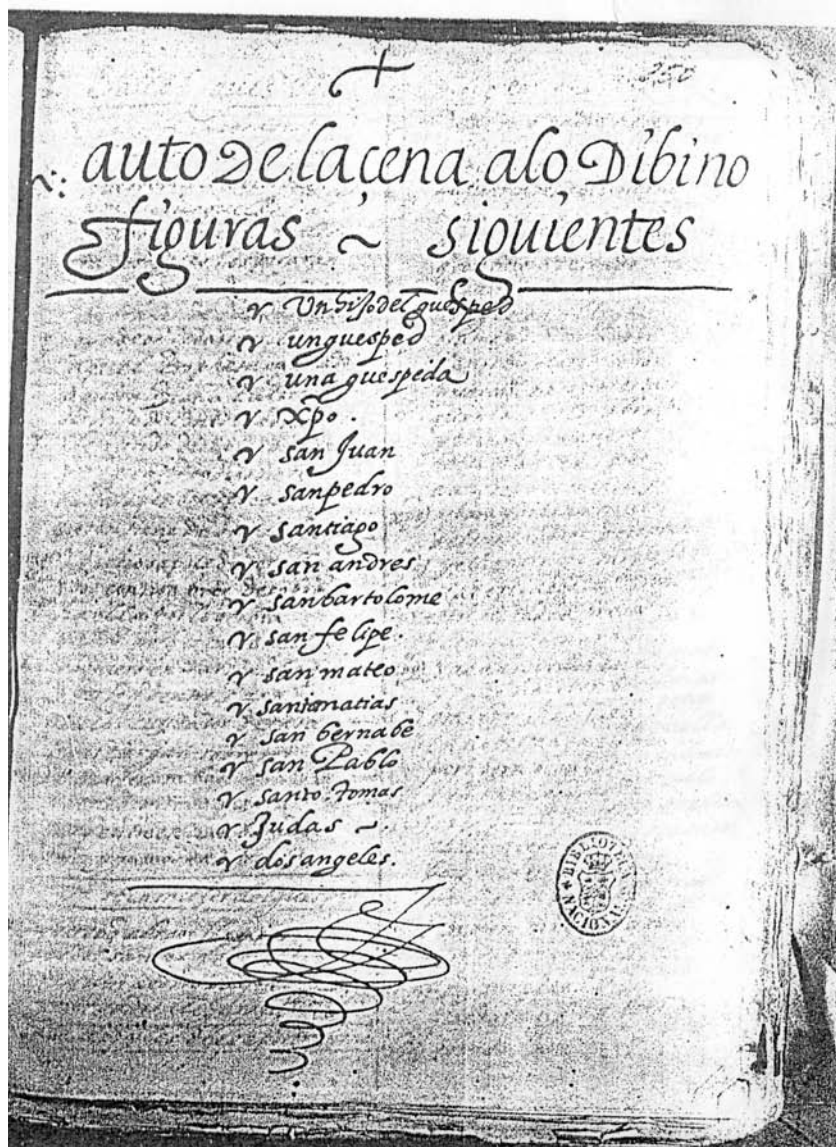 250
auto de la çena a lo Dibino
figuras ~ siguientes
y Un hijo del guesped
y un guesped
y una guespeda
y xpo.
y san Juan
y san pedro
y santiago
y san andres
y san bartolome
y san felipe.
y san mateo
y san matias
y san bernabe
y san Pablo
y santo. Tomas
y Judas ~.
y dos angeles.
BIBLIOTECA
NACIONAL